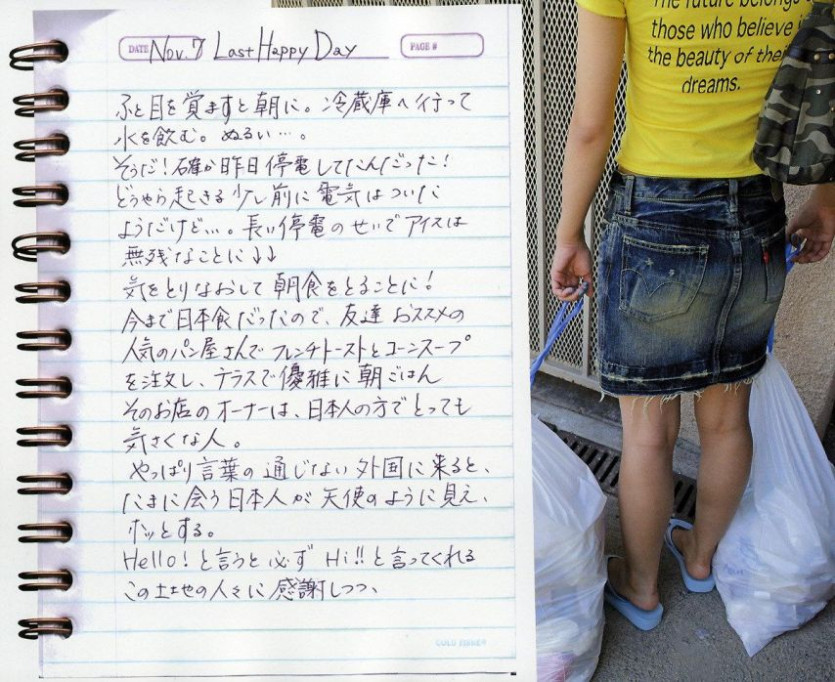 DATE Nov.7 Last Happy Day PAGE #
ふと目を覚ますと朝に。冷蔵庫へ行って
水を飲む。ぬるい…。
そうだ!確か昨日停電してたんだった!
どうやら起きる少し前に電気はついた
ようだけど…。長い停電のせいでアイスは
無残なことに↓↓
気をとりなおして朝食をとることに!
今まで日本食だったので、友達おススメの
人気のパン屋さんでフレンチトーストとコーンスープ
を注文し、テラスで優雅に朝ごはん
そのお店のオーナーは、日本人の方でとっても
気さくな人。
やっぱり言葉の通じない外国に来ると、
たまに会う日本人が天使のように見え、
ホッとする。
Hello!と言うと必ずHi!!と言ってくれる
この土地の人々に感謝しつつ、
The future belongs
those who believe
the beauty of their
dreams.